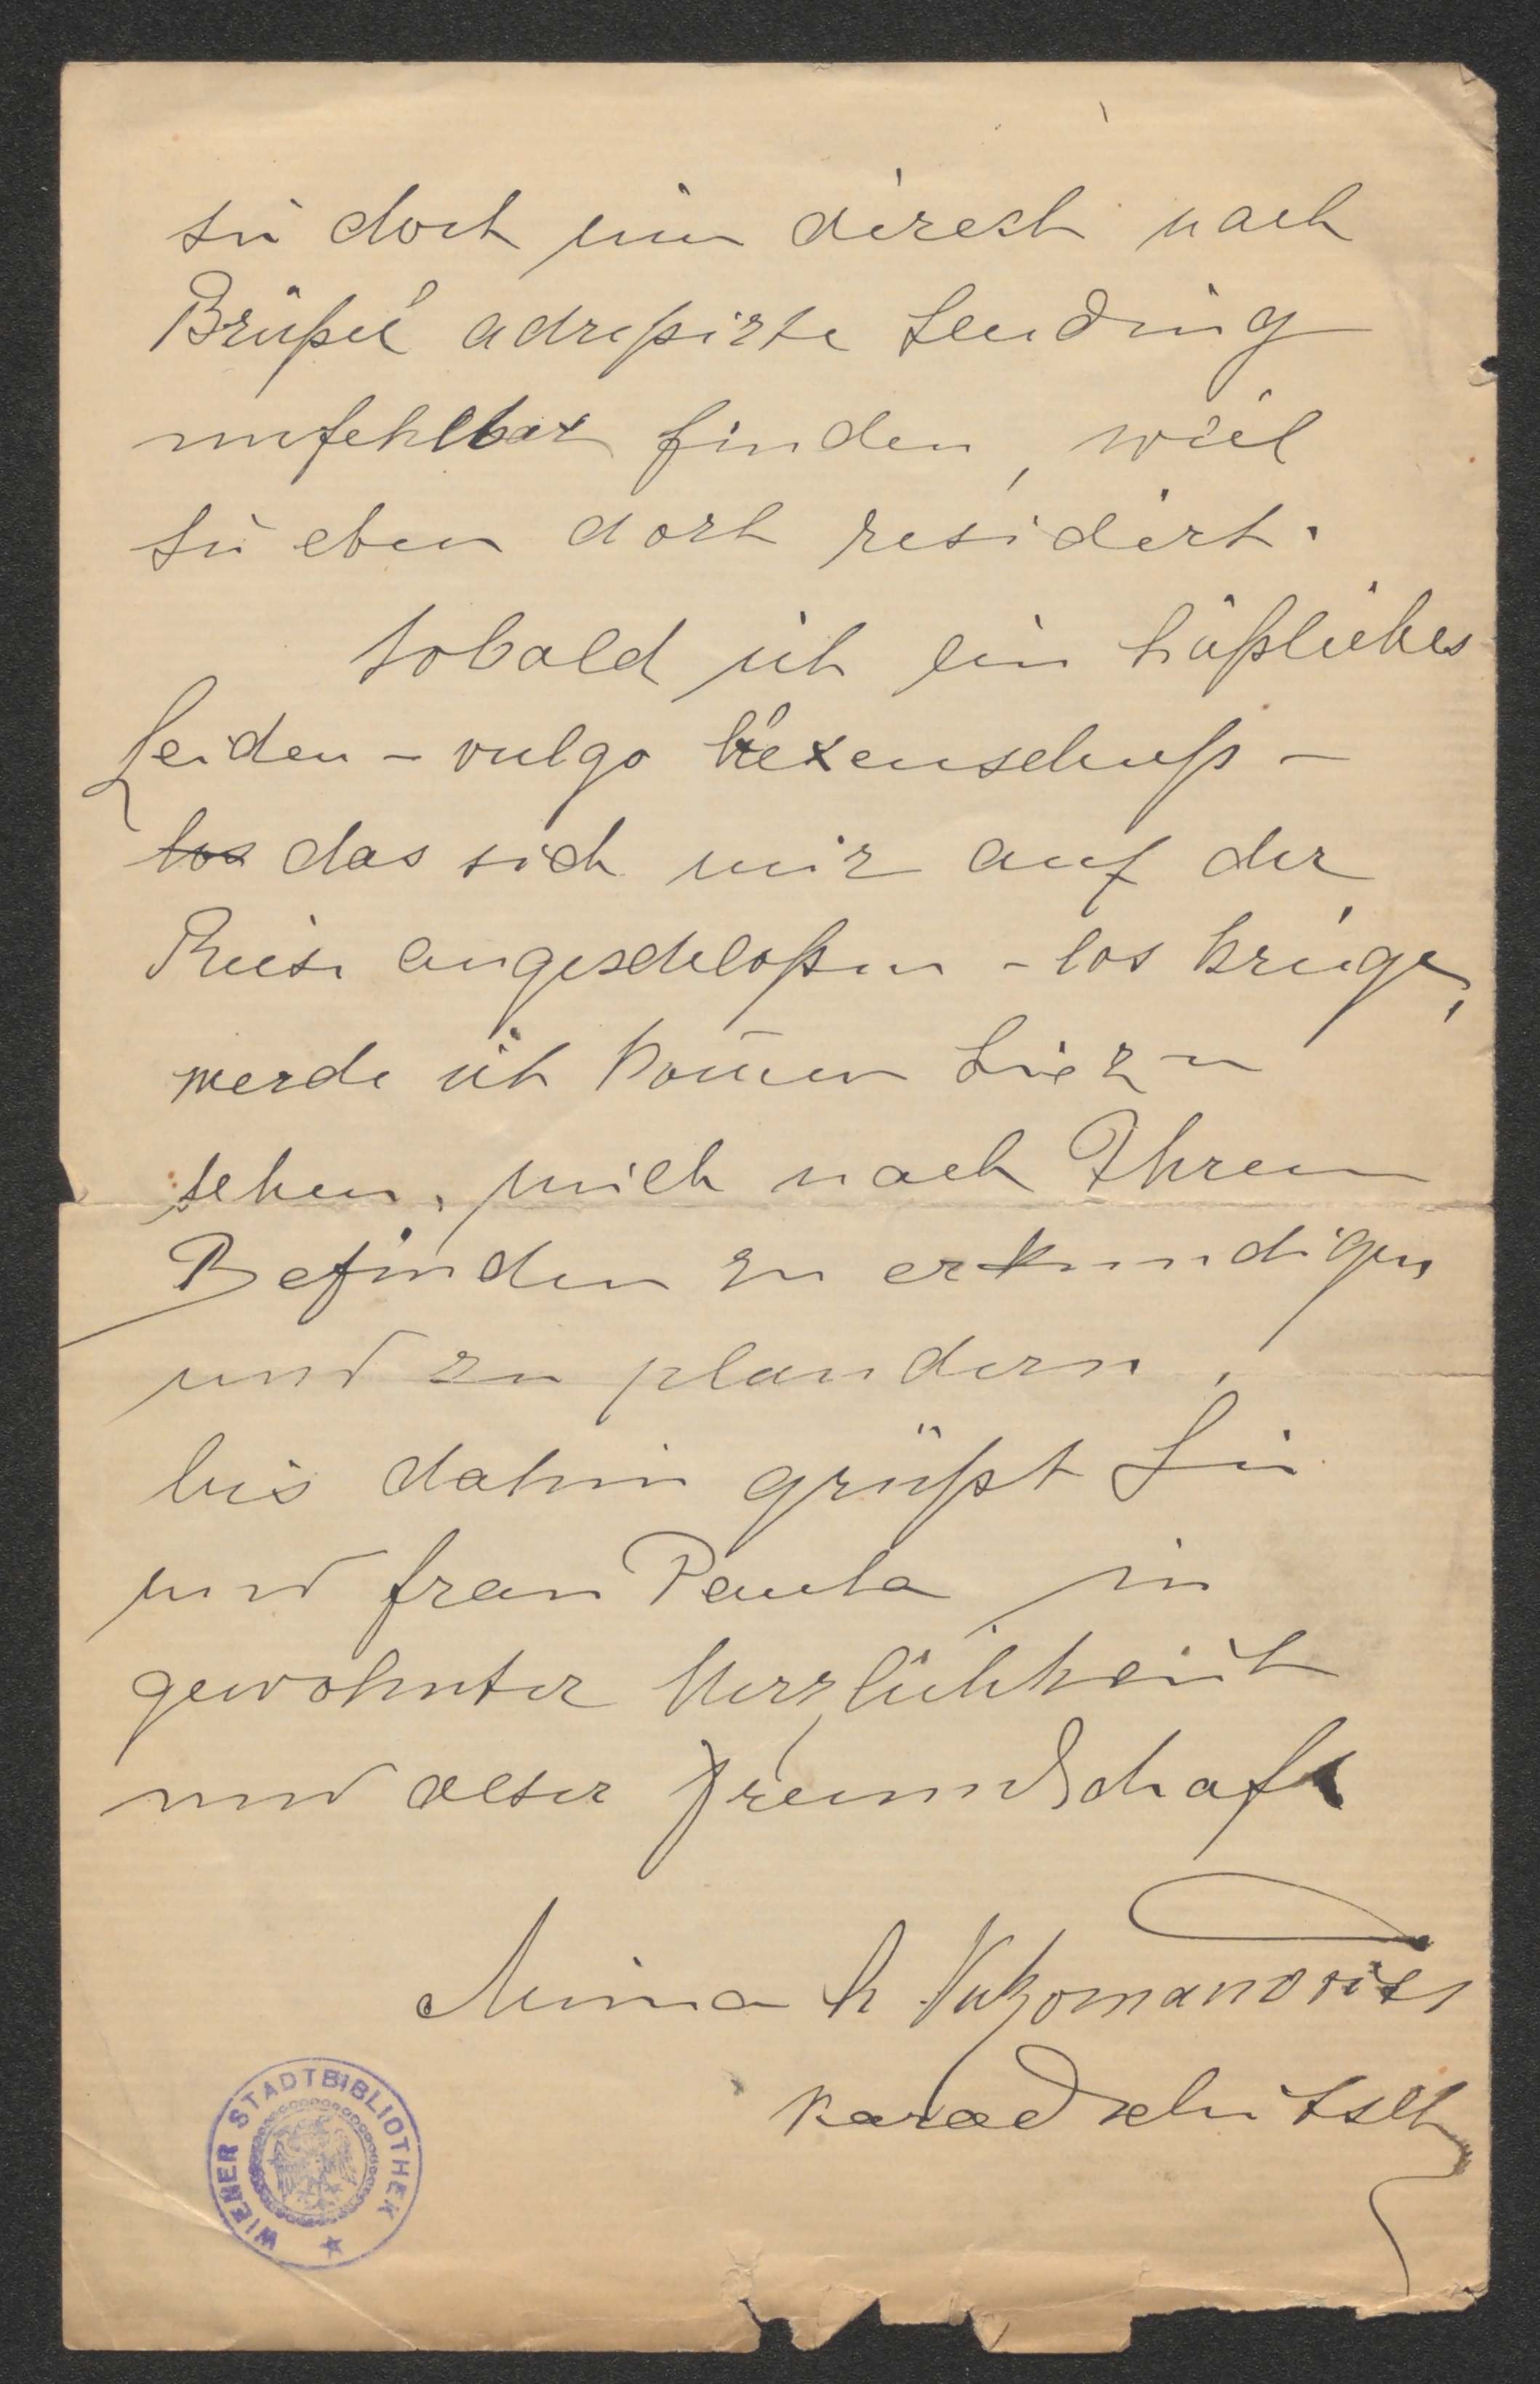 sie doch eine direct nach
Brüßel adreßirte Sendung
unfehlbar finden, weil
sie eben dort residirt.
Sobald ich ein häßliches
Leiden - vulgo Hexenschuß -
los das sich mir auf der
Reise angeschloßen - los kriege,
werde ich kom̄en Sie zu
sehen, mich nach Ihrem
Befinden zu erkundigen
und zu plaudern,
bis dahin grüßt Sie
und Frau Paula in
gewohnter Herzlichkeit
und alter Freundschaft
Mina Vukomanovics
Karadschitsch
WIENER STADTBIBLIOTHEK